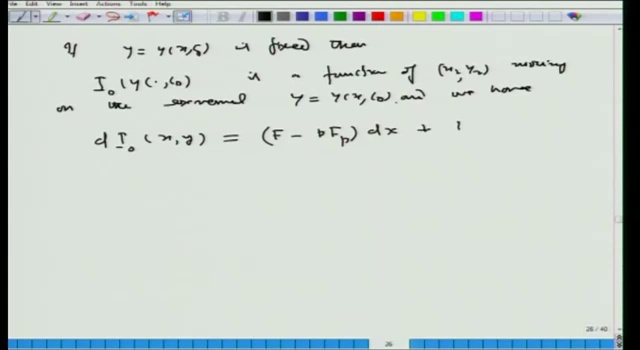 File Edit View Insert Actions Tools Help
If y = y(x, c₀) is fixed then
I₀(y(·, c₀) is a function of (x₂, y₂) moving
on the extremal y = y(x, c₀) and we have
d I₀ (x, y) = (F − pFₚ) dx +
26 / 40
26